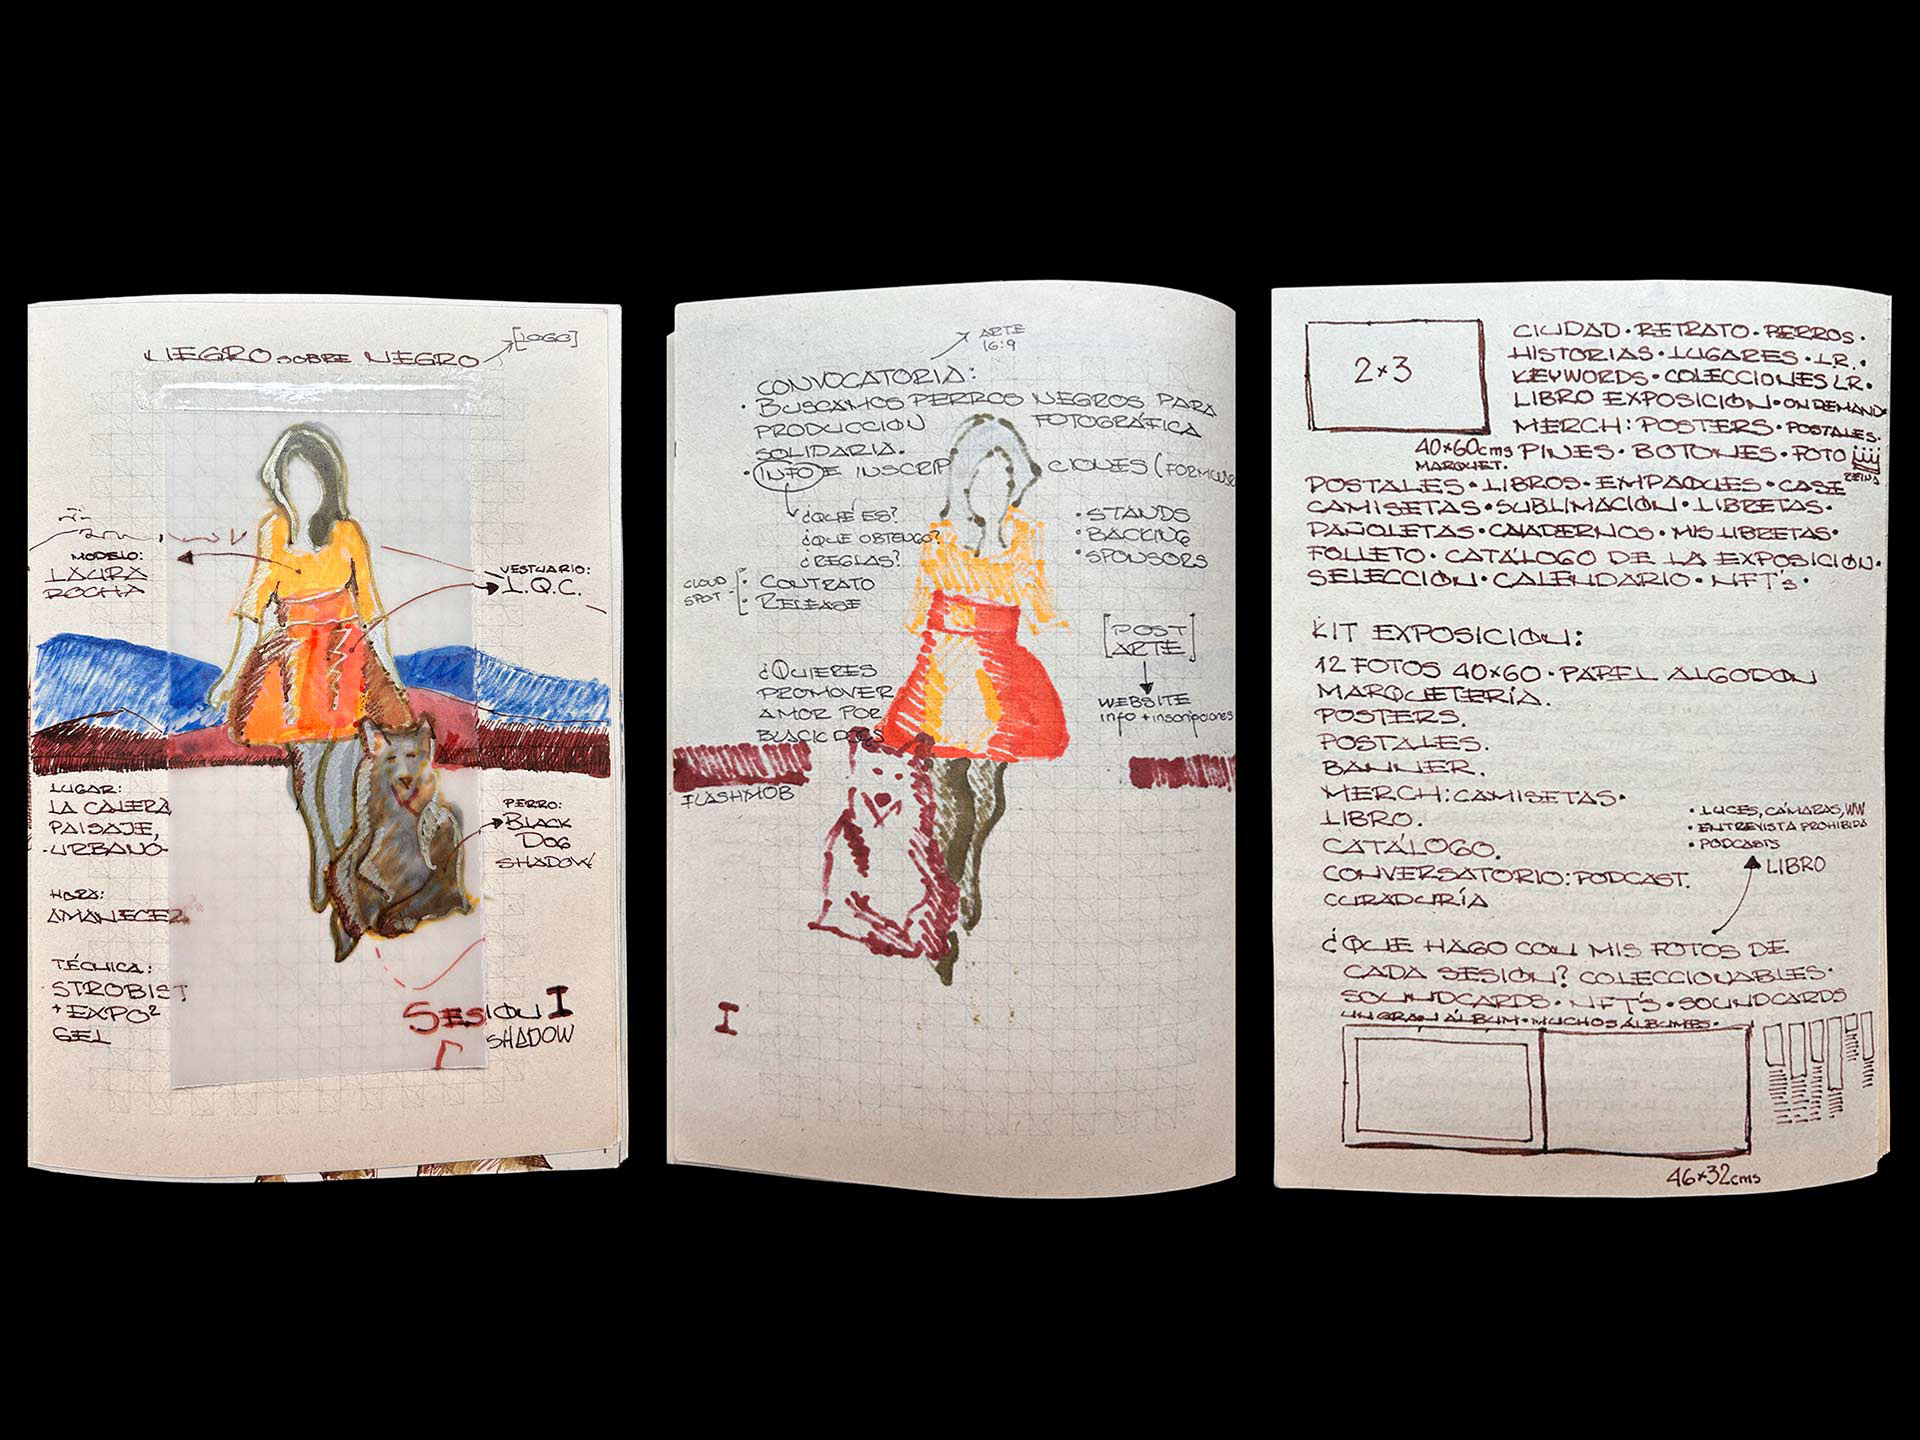 NEGRO SOBRE NEGRO
[LOGO]
MODELO:
LAURA
ROCHA
VESTUARIO:
L.Q.C.
LUGAR:
LA CALERA
PAISAJE,
·URBANO·
PERRO:
BLACK
DOG
SHADOW
HORA:
AMANECER
TÉCNICA:
STROBIST
+ EXPO²
GEL
SESION I
SHADOW
ARTE
16:9
CONVOCATORIA:
· BUSCAMOS PERROS NEGROS PARA
PRODUCCION FOTOGRÁFICA
SOLIDARIA.
· INFO E INSCRIPCIONES
¿QUÉ ES?
¿QUE OBTENGO?
¿REGLAS?
· STANDS
· BACKING
· SPONSORS
CLOUD
SPOT
· CONTRATO
· RELEASE
[POST
ARTE]
WEBSITE
info + inscripciones
¿QUIERES
PROMOVER
AMOR POR
BLACK DOGS
FLASHMOB
I
2×3
40×60cms
MARQUET.
CIUDAD · RETRATO · PERROS ·
HISTORIAS · LUGARES · LR. ·
KEYWORDS · COLECCIONES LR.
LIBRO EXPOSICIÓN · ON DEMAND
MERCH: POSTERS · POSTALES.
PINES · BOTONES · FOTO
REINA
POSTALES · LIBROS · EMPAQUES · CASE
CAMISETAS · SUBLIMACIÓN · LIBRETAS ·
PAÑOLETAS · CUADERNOS · MIS LIBRETAS ·
FOLLETO · CATÁLOGO DE LA EXPOSICIÓN ·
SELECCIÓN · CALENDARIO · NFT's ·
KIT EXPOSICION:
12 FOTOS 40×60 · PAPEL ALGODON
MARQUETERÍA.
POSTERS.
POSTALES.
BANNER.
MERCH: CAMISETAS ·
LIBRO.
CATÁLOGO.
CONVERSATORIO: PODCAST.
CURADURÍA
· LUCES, CÁMARAS, WW
· ENTREVISTA PROHIBIDA
· PODCASTS
LIBRO
¿QUE HAGO CON MIS FOTOS DE
CADA SESIÓN? COLECCIONABLES ·
SOUNDCARDS · NFT's · SOUNDCARDS
UN GRAN ÁLBUM · MUCHOS ÁLBUMES ·
46×32cms